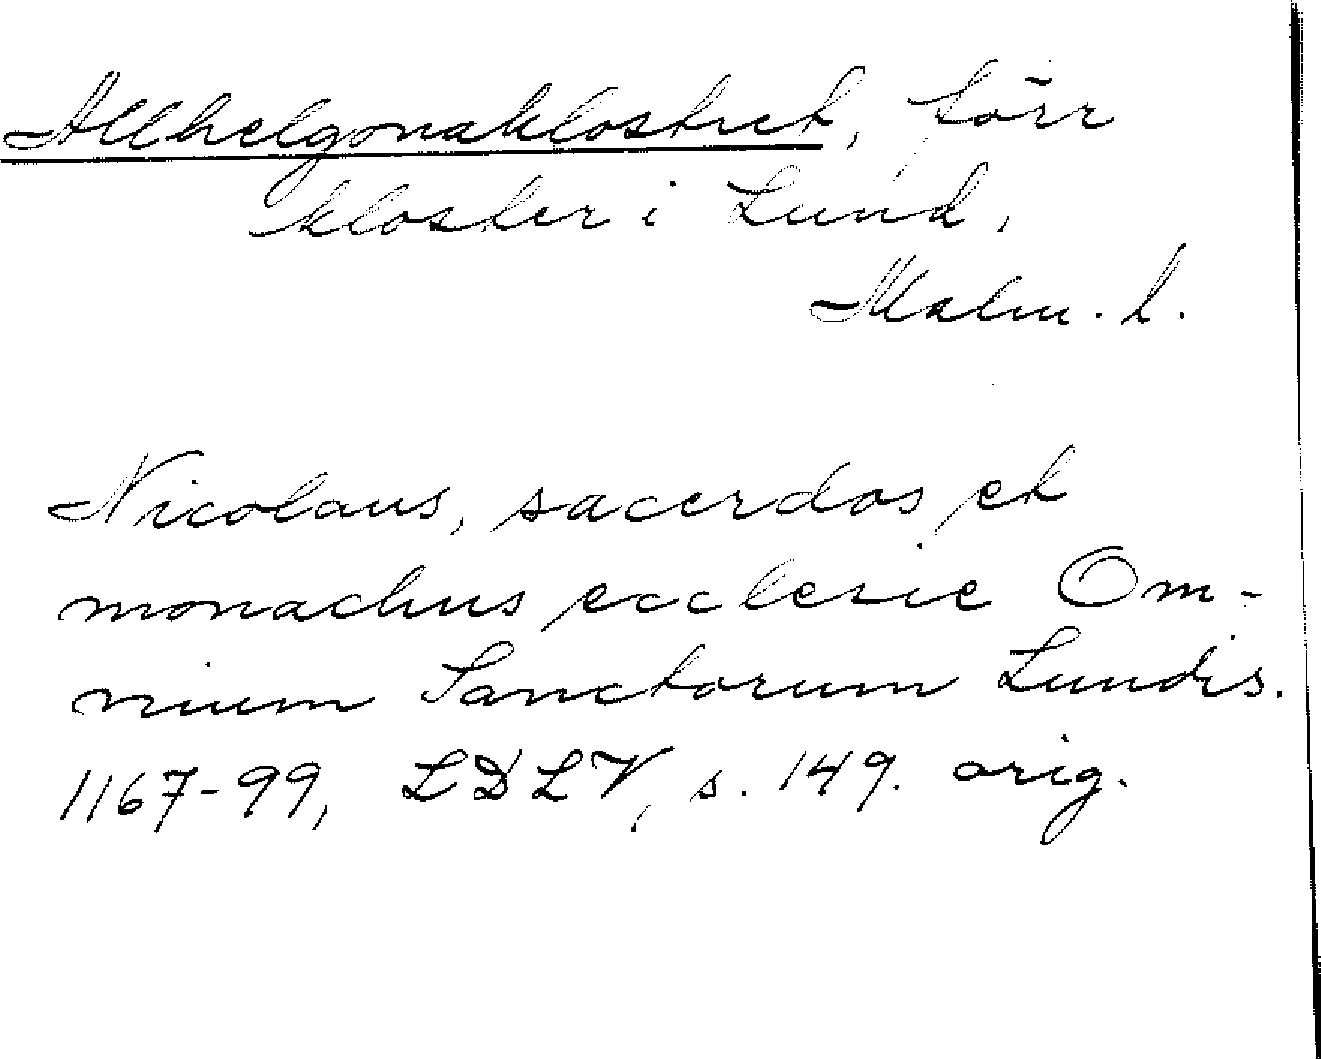 Allhelgonaklostret, förr
kloster i Lund,
Malm. l.
Nicolaus, sacerdos et
monachus ecclesie Om-
nium Sanctorum Lundis.
1167-99, LDLV, s. 149. orig.